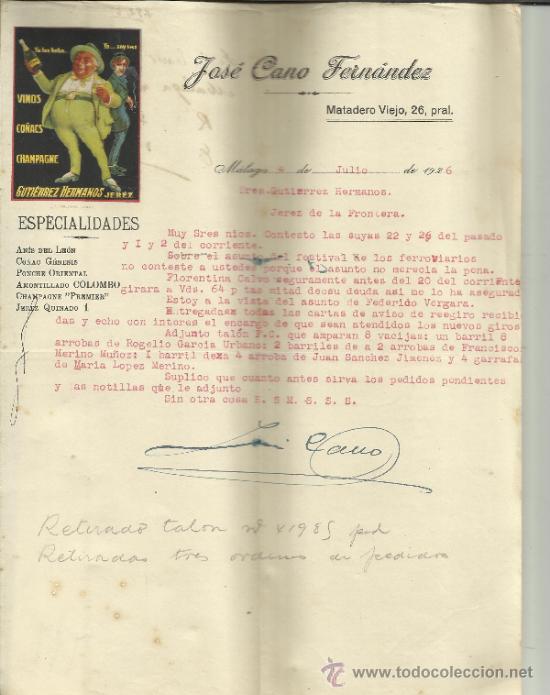 José Cano Fernández
Matadero Viejo, 26, pral.
Yo ... soy ese!
VINOS
COÑACS
CHAMPAGNE
GUTIÉRREZ HERMANOS JEREZ
ESPECIALIDADES
ANIS DEL LEÓN
COÑAC GÉNESIS
PONCHE ORIENTAL
AMONTILLADO COLOMBO
CHAMPAGNE "PREMIER"
JEREZ QUINADO
Málaga 4 de Julio de 1926
Sres. Gutierrez Hermanos.
Jerez de la Frontera.
Muy Sres mios. Contesto las suyas 22 y 26 del pasado
y I y 2 del corriente.
Sobre el asunto del festival de los ferroviarios
no conteste a ustedes porque el asunto no merecia la pena.
Florentina Calvo seguramente antes del 20 del corriente
girara a Vds. 64 p tas mitad desou deuda asi me lo ha asegurad
Estoy a la vista del asunto de Federico Vergara.
Entregadas todas las cartas de aviso de reegiro recibi
das y echo con interes el encargo de que sean atendidos los nuevos giros
Adjunto talón F.C. que amparan 8 vacijas: un barril 8
arrobas de Rogelio Garcia Urbano: 2 barriles de a 2 arrobas de Francisco
Merino Muñoz: I barril dexa 4 arroba de Juan Sanchez Jimenez y 4 garrafa
de Maria Lopez Merino.
Suplico que cuanto antes sirva los pedidos pendientes
y las notillas que le adjunto
Sin otra cosa E. S M. S. S. S.
Cano
Retirado talon nº x 1985
Retiradas tres ordenes de pedidos
www.todocoleccion.net